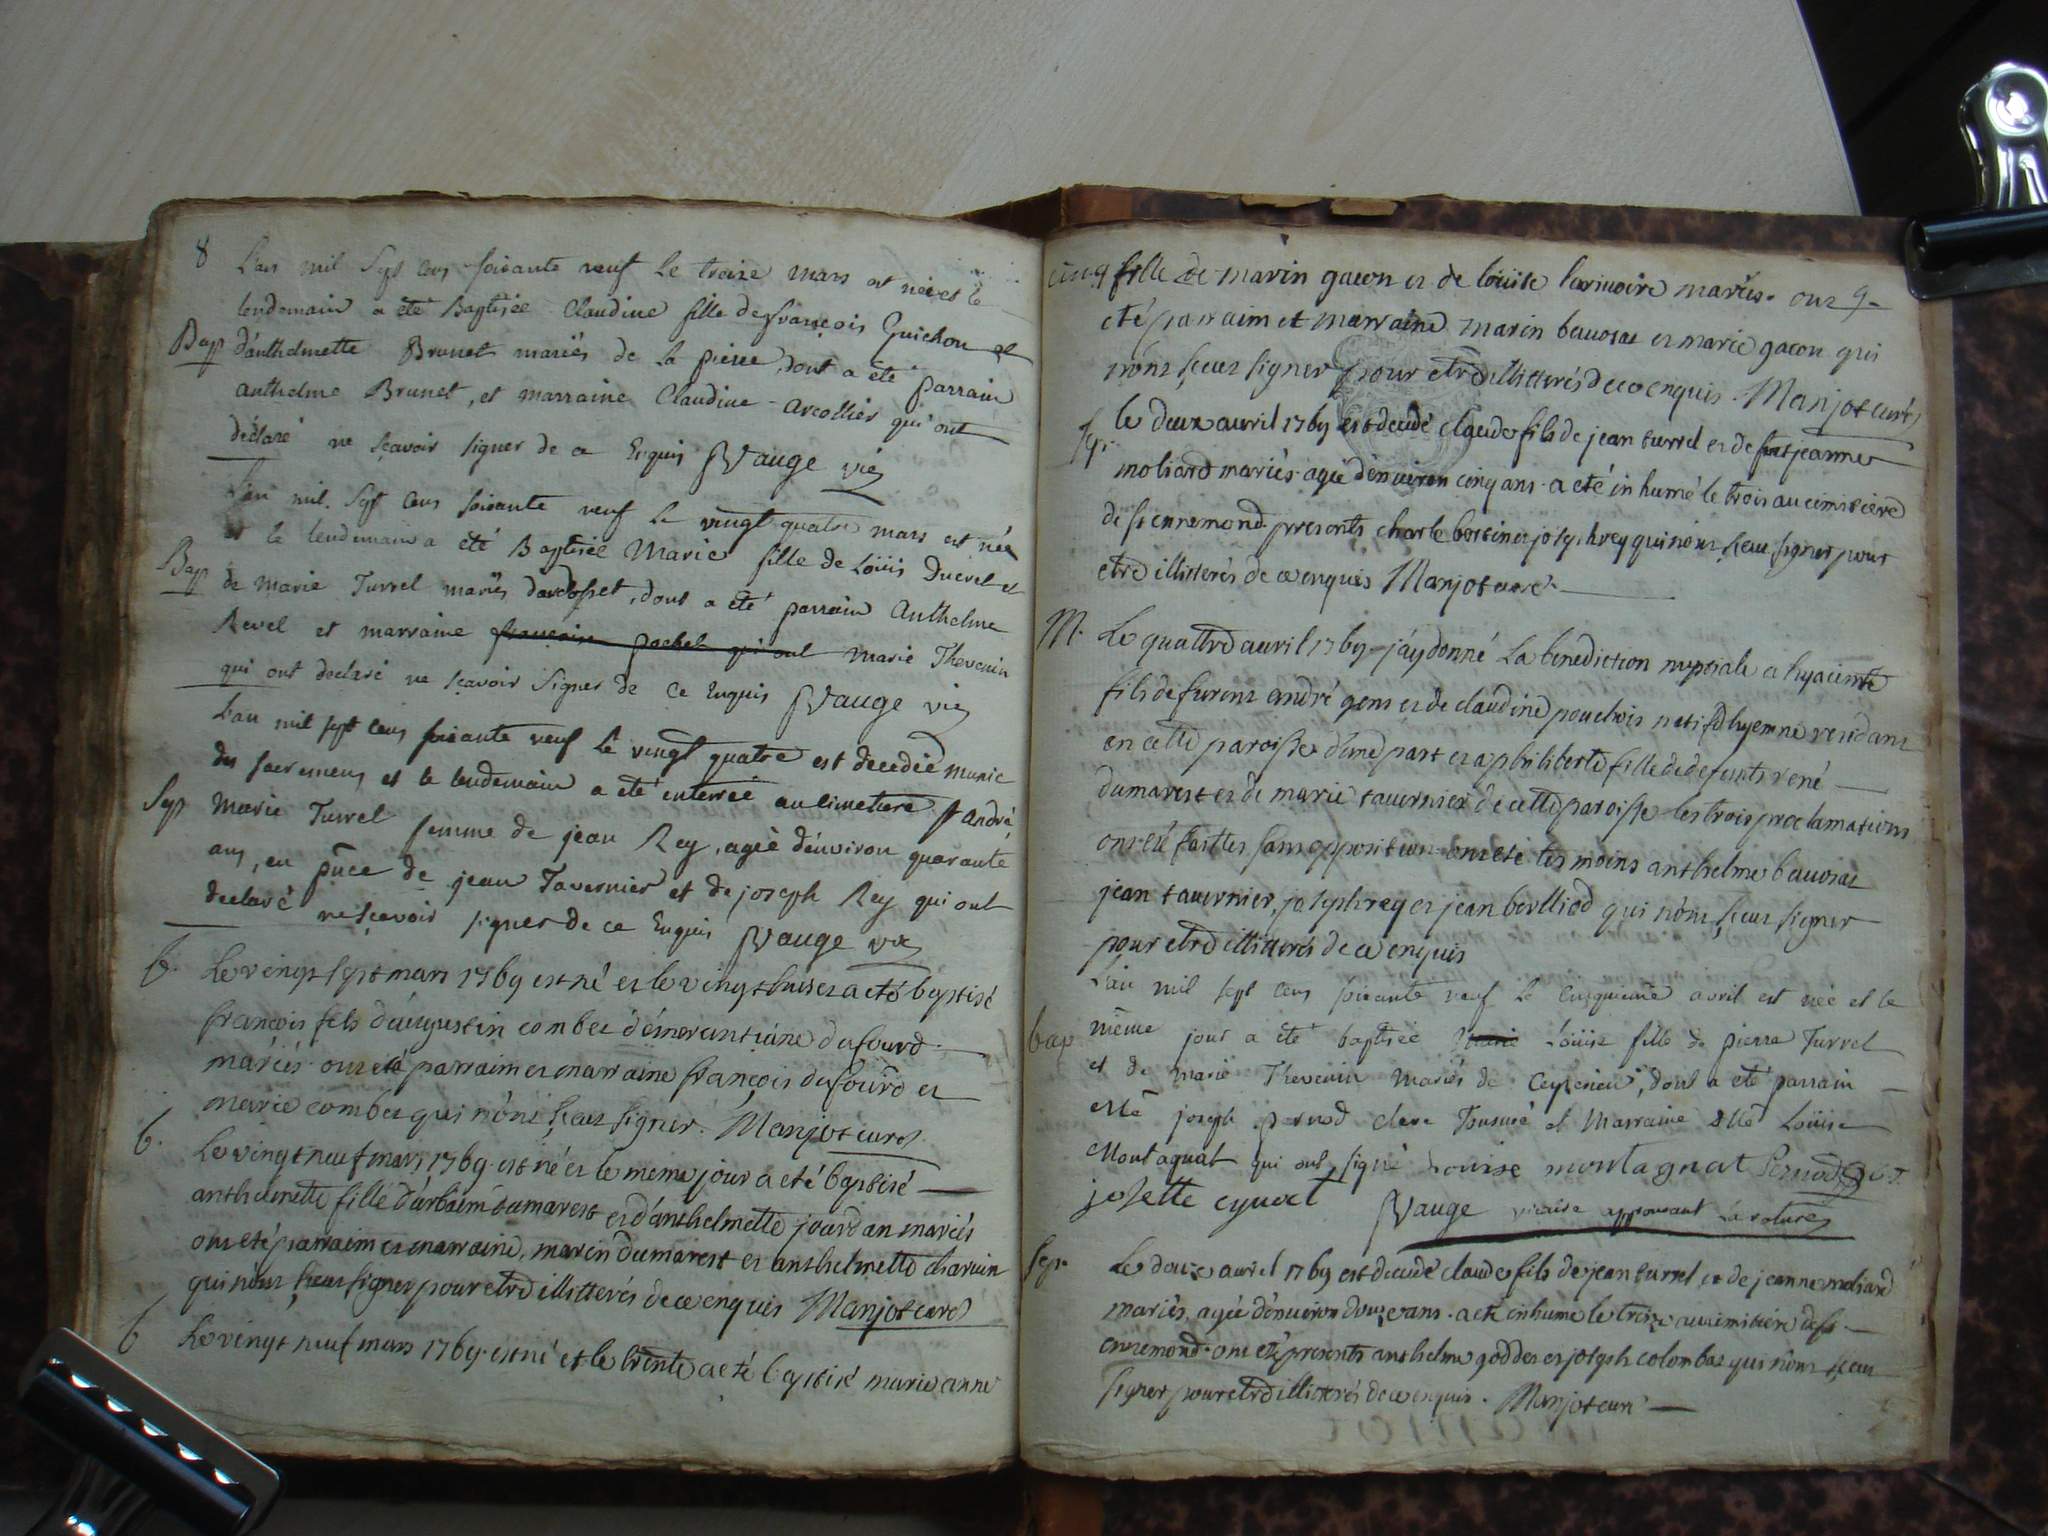 8
L'an mil sept cens soixante neuf le treize mars est née et le
lendemain a été Baptisée Claudine fille de françois Guichon et
Bap d'anthelmette Brunet mariés de la pierre, dont a été parrain
anthelme Brunet, et marraine Claudine arcollier qui ont
déclaré ne sçavoir signer de ce Enquis Vauge vic
L'an mil sept cens soixante neuf le vingt quatre mars est née
et le lendemain a été Baptisée Marie fille de Loüis Ducrel et
Bap de Marie Turrel mariés dardosset, dont a été parrain Anthelme
Revel et marraine françoise pochet qui ont marie Thevenin
qui ont declaré ne sçavoir signer de ce Enquis Vauge vic
L'an mil sept cens soixante neuf le vingt quatre est decedée munie
des sacremens et le lendemain a été enterrée au cimetiere st André
Sep Marie Turrel femme de jean Rey, agée d'environ quarante
ans, en pñce de jean Tavernier et de joseph Rey qui ont
declaré ne sçavoir signer de ce Enquis Vauge vic
b. Le vingt sept mars 1769 est né et le vingt huit a eté baptisé
françois fils d'augustin combet et dufourd
mariés ont eté parraim et marraine françois dufourd et
marie combet qui n'ont sceu signer. Manjot curé
b. Le vingt neuf mars 1769 est né et le meme jour a eté baptisé
anthelmette fille d'anthelme dumarest et d'anthelmette jourdan mariés
ont eté parraim et marraine, marin dumarest et anthelmette charvin
qui n'ont sceu signer pour etre illitterés de ce enquis Manjot curé
b Le vingt neuf mars 1769 est né et le trente a eté baptisé marie anne
cinq fille de marin gacon et de loüise mariés. ont 9
eté parraim et marraine marin bavosat et marie gacon qui
n'ont sceu signer pour etre illitterés de ce enquis. Manjot curé
Sep. le deux avril 1769 est decedé claude fils de jean turrel et de jeanne
moliard mariés agé d'environ cinq ans a eté inhumé le trois au cimitiere
de st ennemond. presents charle bottin et joseph rey qui n'ont sceu signer pour
etre illitterés de ce enquis Manjot curé
M. Le quattre avril 1769 j'ay donné la benediction nuptiale a hyacinte
fils de furent andré gons et de claudine pouchois natif d'hyenne residant
en cette paroisse d'une part et a philiberte fille de defunts rené
dumarest et de marie tavernier de cette paroisse les trois proclamations
ont eté faittes sans opposition ont eté tesmoins anthelme bavosat
jean tavernier, joseph rey et jean berlliod qui n'ont sceu signer
pour etre illitterés de ce enquis
L'an mil sept cens soixante neuf le cinquieme avril est née et le
bap même jour a été baptisée Marie Loüise fille de pierre Turrel
et de marie Thevenin mariés de Ceyzerieu, dont a été parrain
joseph pernod clerc Tonsuré et Marraine dlle Loüise
Montagnat qui ont signé Louise montagnat Pernod
josette cynoct Vauge vicaire approuvant la rature
Sep. Le douze avril 1769 est decedé claude fils de jean turrel et de jeanne moliard
mariés, agée d'environ douze ans. a eté inhumé le treize au cimitiere de st
ennemond. ont eté presents anthelme goddet et joseph colombat qui n'ont sceu
signer pour etre illitterés de ce enquis. Manjot curé